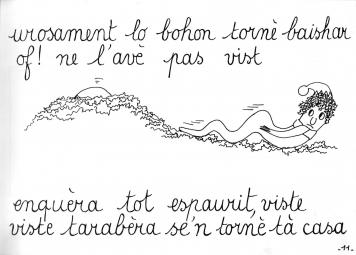 urosament lo bohon tornè baishar
of! ne l'avè pas vist
enquèra tot espaurit, viste
viste tarabèra se'n tornè tà casa
-11-